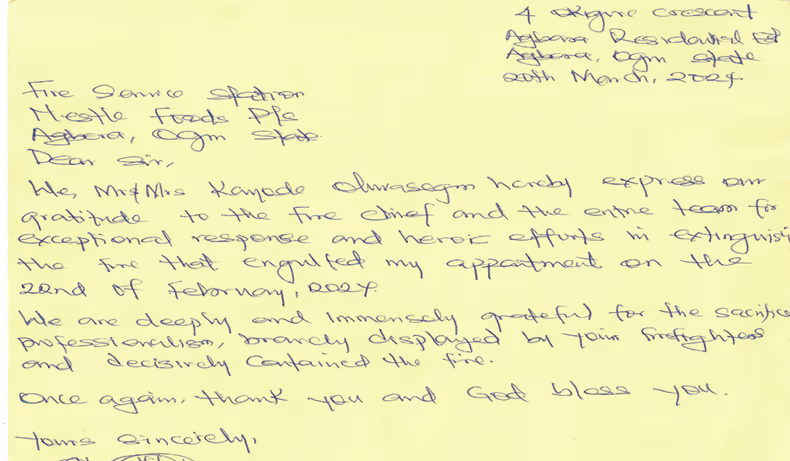 4 Okigwe Crescent
Agbara Residential Est
Agbara, Ogun State
20th March, 2024
Fire Service Station
Nestle Foods Plc
Agbara, Ogun State
Dear Sir,
We, Mr & Mrs Kayode Oluwasegun hereby express our
gratitude to the fire chief and the entire team for
exceptional response and heroic efforts in extinguish
the fire that engulfed my appartment on the
22nd of February, 2024
We are deeply and immensely grateful for the sacrifice
professionalism, bravely displayed by your firefighters
and decisively contained the fire.
Once again, thank you and God bless you.
Yours Sincerely,